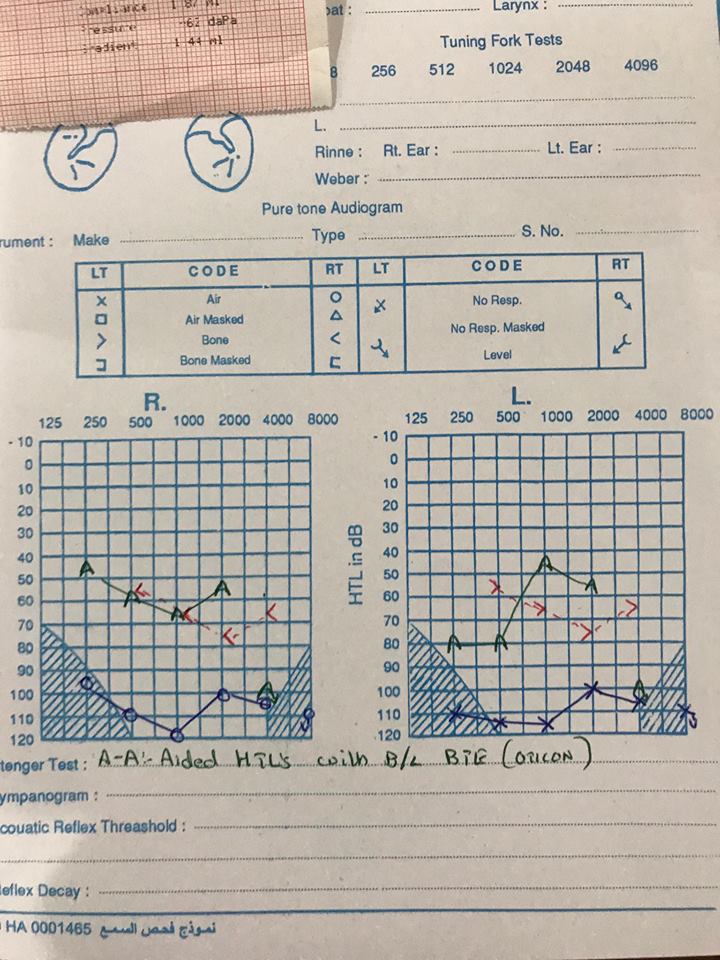 1 87 ml
Larynx :
Pressure -62 daPa
Gradient 1 44 ml
Tuning Fork Tests
256 512 1024 2048 4096
L.
Rinne : Rt. Ear : Lt. Ear :
Weber :
Pure tone Audiogram
Make Type S. No.
LT CODE RT LT CODE RT
X Air O No Resp.
□ Air Masked △ No Resp. Masked
> Bone < Level
⊐ Bone Masked ⊏
R. L.
125 250 500 1000 2000 4000 8000
125 250 500 1000 2000 4000 8000
- 10
0
10
20
30
40
50
60
70
80
90
100
110
120
HTL in dB
- 10
0
10
20
30
40
50
60
70
80
90
100
110
120
tenger Test : A-A:- Aided HTLs with B/L BTE (OTICON)
ympanogram :
couatic Reflex Threashold :
Reflex Decay :
HA 0001465 نموذج فحص السمع